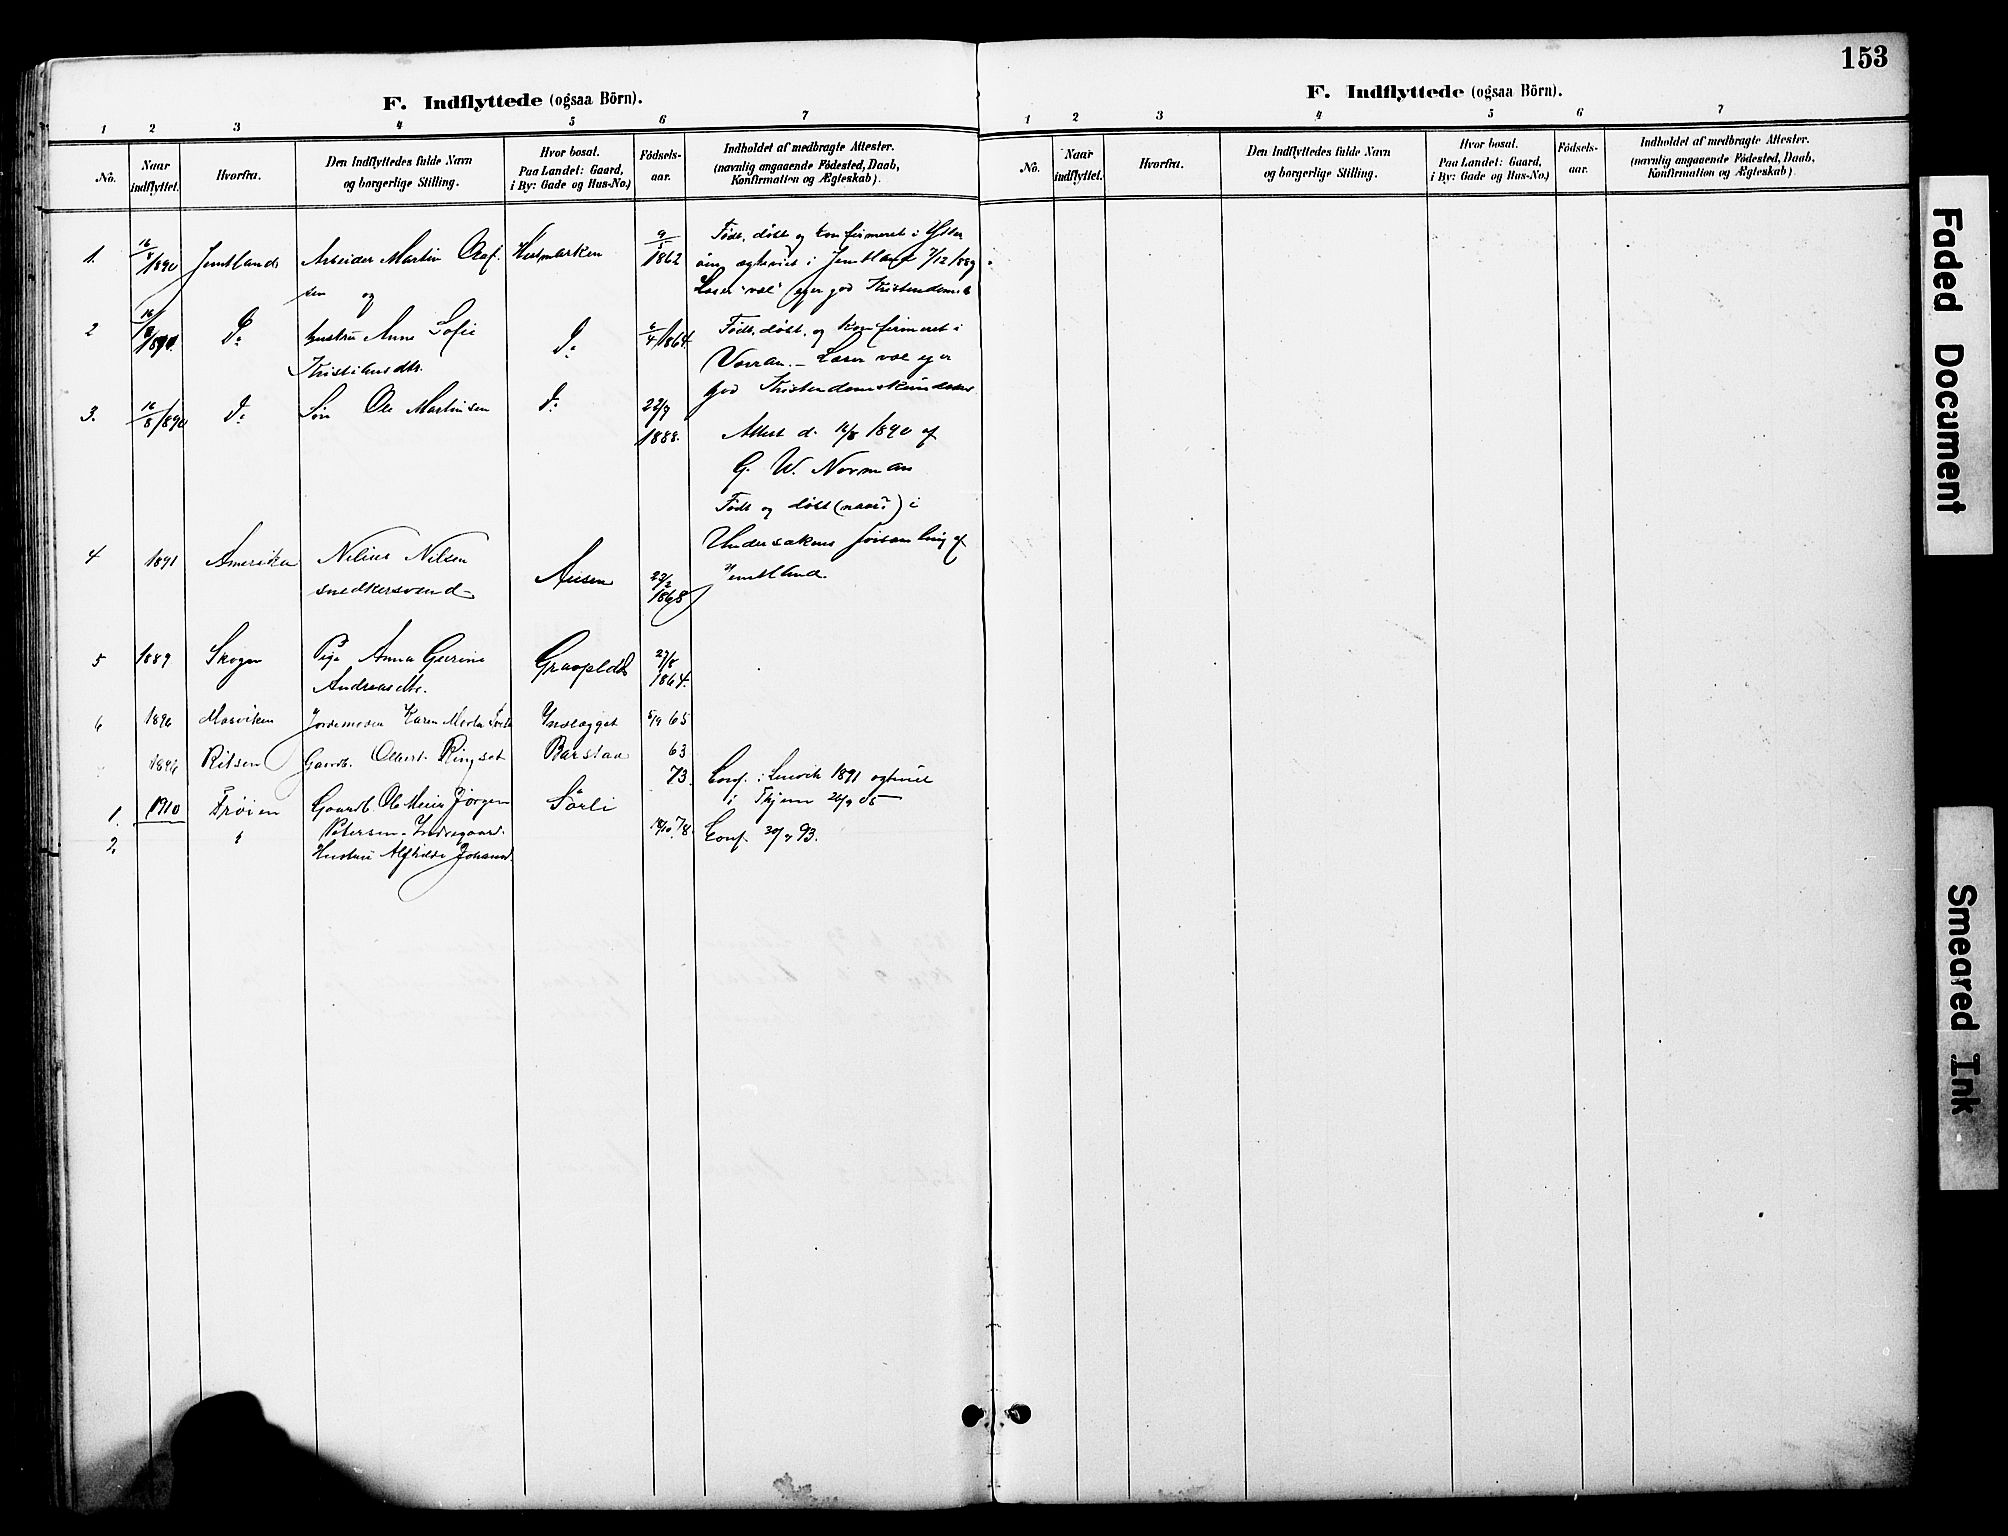 153
F. Indflyttede (ogsaa Börn).
1 2 3 4 5 6 7
No. Naar indflyttet. Hvorfra. Den Indflyttedes fulde Navn og borgerlige Stilling. Hvor bosat. Paa Landet: Gaard, i By: Gade og Hus-No.) Födsels-aar. Indholdet af medbragte Attester. (navnlig angaaende Födested, Daab, Konfirmation og Ægteskab).
1. 16/8 1890 Jemtland Arbeider Martin Olaf- Holmarken 9/5 1862 Født, døbt og konfirmeret i Ytter
sen og øen, ægteviet i Jemtland 7/12 1889
Læser "vel" eier god Kristendomsk
2 16/8 1890. Do Hustru Anne Sofie Do 6/4 1864. Født, døbt, og konfirmeret i
Kristiansdtr. Værran. - Læser vel eier
god Kristendomskundskab
3. 16/8 1890 Do Søn Ole Martinsen Do 22/9 1888. Attest d. 16/8 1890 af
G. W. Norman
Født og døbt (naar?) i
Undersakers forsamling af
Jemtland.
4 1891 Amerika Nilius Nilsen Ausen 23/2 1868
snedkersvend
5 1889 Skogn Pige Anna Gurine 27/8 1864.
Andreasdtr.
6 1896 Mosviken Jordemoder Karen Marta Vinslægget 5/9 65
1896 Ritsen Gaardb. Olbert Ringset Barstad 63
1. 1910 Frøien Gaardb. Ole Meier Jørgen Sørli 73. Conf. i Lensvik 1891 ægteviet
Petersen - Indregaard. i 26/9 05
2. " Hustru Alfhilde Johans 18/10 78. Conf. 30/7 93.
F. Indflyttede (ogsaa Börn).
1 2 3 4 5 6 7
No. Naar indflyttet. Hvorfra. Den Indflyttedes fulde Navn og borgerlige Stilling. Hvor bosat. Paa Landet: Gaard, i By: Gade og Hus-No.) Födsels-aar. Indholdet af medbragte Attester. (navnlig angaaende Födested, Daab, Konfirmation og Ægteskab).
Faded Document
Smeared Ink